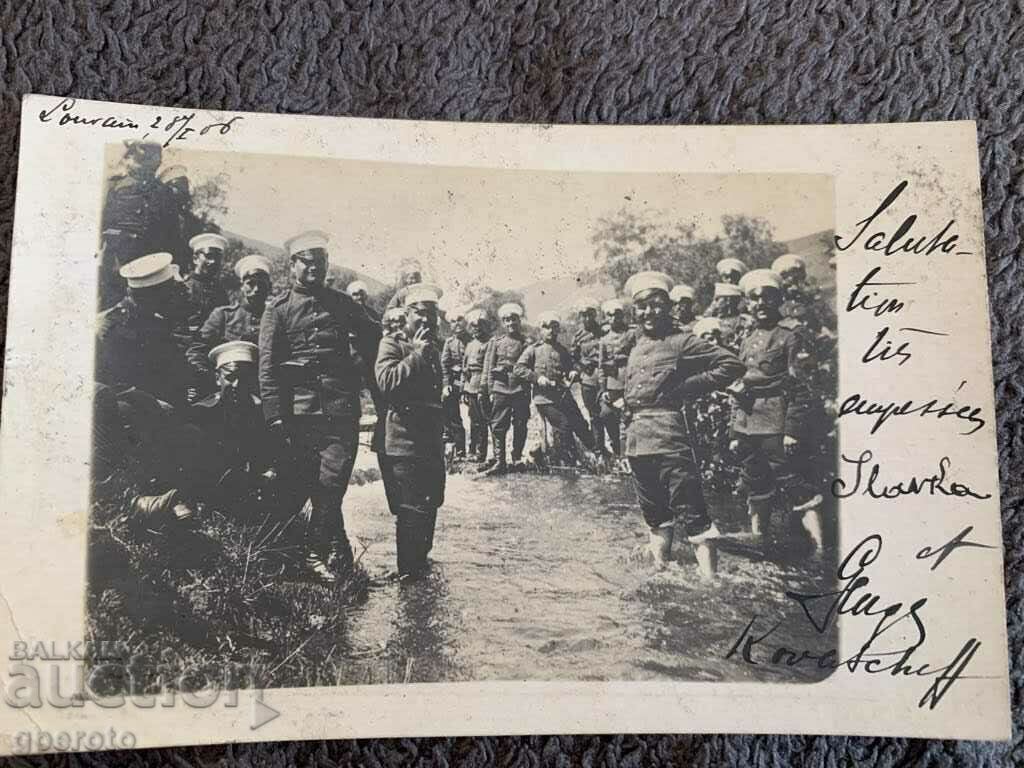 Louvain, 28/I 06
Saluta-
tions
très
empressées
Slavka
et
Kovatscheff
BALKAN
auction
gperoto